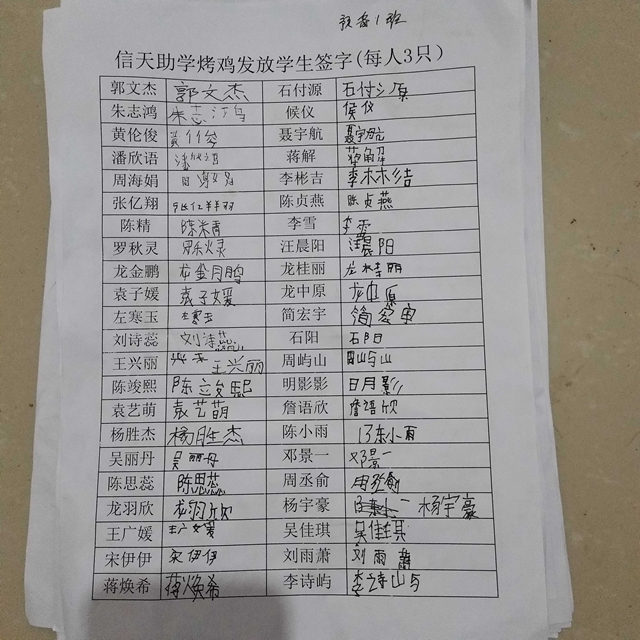 1班
信天助学烤鸡发放学生签字(每人3只)
郭文杰 郭文杰 石付源 石付源
朱志鸿 朱志鸿 候仪 侯仪
黄伦俊 黄伦俊 聂宇航 聂宇航
潘欣语 潘欣语 蒋解 蒋解
周海娟 周海娟 李彬吉 李彬洁
张亿翔 张亿翔 陈贞燕 陈贞燕
陈精 陈精 李雪 李雪
罗秋灵 罗秋灵 汪晨阳 汪晨阳
龙金鹏 龙金鹏 龙桂丽 龙桂丽
袁子媛 袁子媛 龙中原 龙中原
左寒玉 左寒玉 简宏宇 简宏宇
刘诗蕊 刘诗蕊 石阳 石阳
王兴丽 王兴丽 周屿山 周屿山
陈竣熙 陈竣熙 明影影 明影
袁艺萌 袁艺萌 詹语欣 詹语欣
杨胜杰 杨胜杰 陈小雨 陈小雨
吴丽丹 吴丽丹 邓景一 邓景一
陈思蕊 陈思蕊 周丞俞 周丞俞
龙羽欣 龙羽欣 杨宇豪 杨宇豪
王广媛 王广媛 吴佳琪 吴佳琪
宋伊伊 宋伊伊 刘雨萧 刘雨萧
蒋焕希 蒋焕希 李诗屿 李诗屿